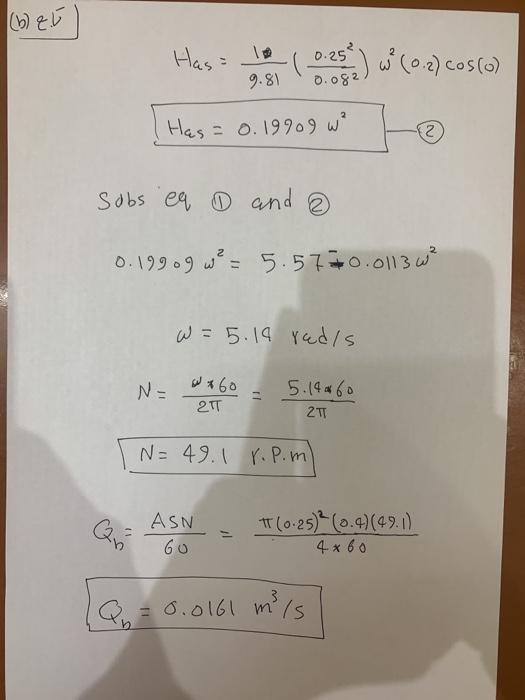 (b) تابع
Has = 10/9.81 (0.25²/0.08²) ω² (0.2) cos(0)
Has = 0.19909 ω² — ②
Sabs eq ① and ②
0.19909 ω² = 5.57 - 0.0113 ω²
ω = 5.14 rad/s
N = ω*60/2π = 5.14*60/2π
N = 49.1 r.P.m
Qh = ASN/60 = π(0.25)²(0.4)(49.1)/4×60
Qh = 0.0161 m³/s